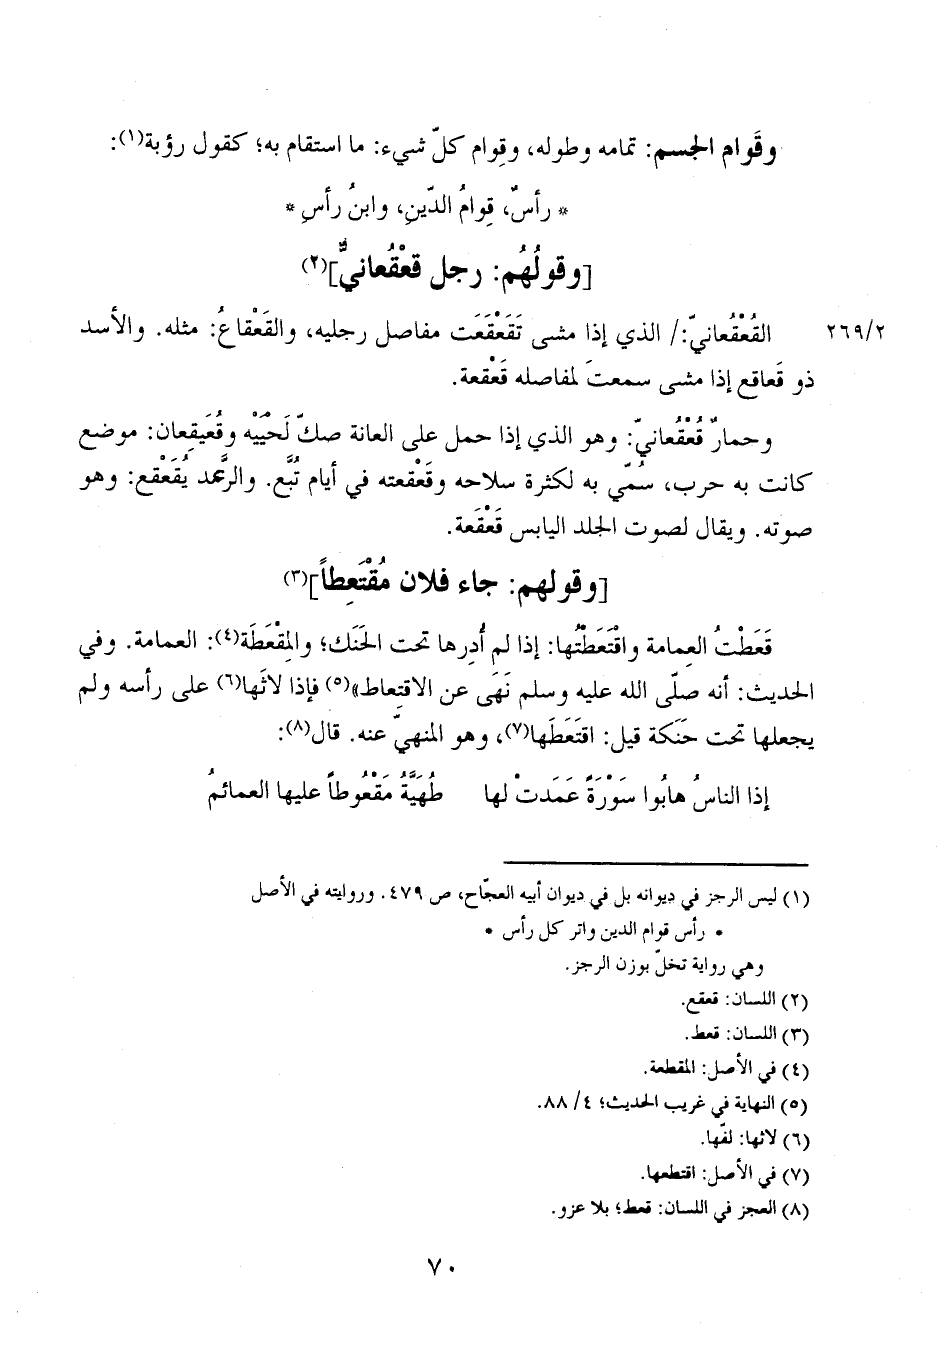 وقَوام الجسم: تمامه وطوله، وقِوام كلّ شيء: ما استقام به؛ كقول رؤبة(١):
* رأسٌ، قِوامُ الدّينِ، وابنُ رأسِ *
[وقولُهُم: رجل قعْقُعانيٌّ](٢)
٢٦٩/٢ القُعْقُعانيّ:/ الذي إذا مشى تَقَعْقَعَت مفاصل رجليه، والقَعْقاعُ: مثله. والأسد
ذو قَعاقع إذا مشى سمعتَ لمفاصله قَعْقعة.
وحمارٌ قُعْقُعانيّ: وهو الذي إذا حمل على العانة صكّ لَحْيَيْه وقُعَيقِعان: موضع
كانت به حرب، سُمّي به لكثرة سلاحه وقَعْقعته في أيام تُبَّع. والرَّعد يُقَعْقع: وهو
صوته. ويقال لصوت الجلد اليابس قَعْقَعة.
[وقولهم: جاء فلان مُقْتَعِطاً](٣)
قَعَطْتُ العِمامة واقْتَعَطْتُها: إذا لم أُدِرها تحت الحَنَك؛ والمِقْعَطَة(٤): العمامة. وفي
الحديث: أنه صلّى الله عليه وسلم نَهَى عن الاقتعاط»(٥) فإذا لاثَها(٦) على رأسه ولم
يجعلها تحت حَنَكة قيل: اقتَعَطَها(٧)، وهو المنهيّ عنه. قال(٨):
إذا الناسُ هابُوا سَوْرَةً عَمَدتْ لها     طُهَيَّةُ مَقْعُوطاً عليها العمائمُ
(١) ليس الرجز في ديوانه بل في ديوان أبيه العجّاج، ص ٤٧٩. وروايته في الأصل
* رأس قوام الدين واتر كل رأس *
وهي رواية تخلّ بوزن الرجز.
(٢) اللسان: قعقع.
(٣) اللسان: قعط.
(٤) في الأصل: المقطعة.
(٥) النهاية في غريب الحديث؛ ٤/ ٨٨.
(٦) لاثها: لفّها.
(٧) في الأصل: اقتطعها.
(٨) العجز في اللسان: قعط؛ بلا عزو.
٧٠